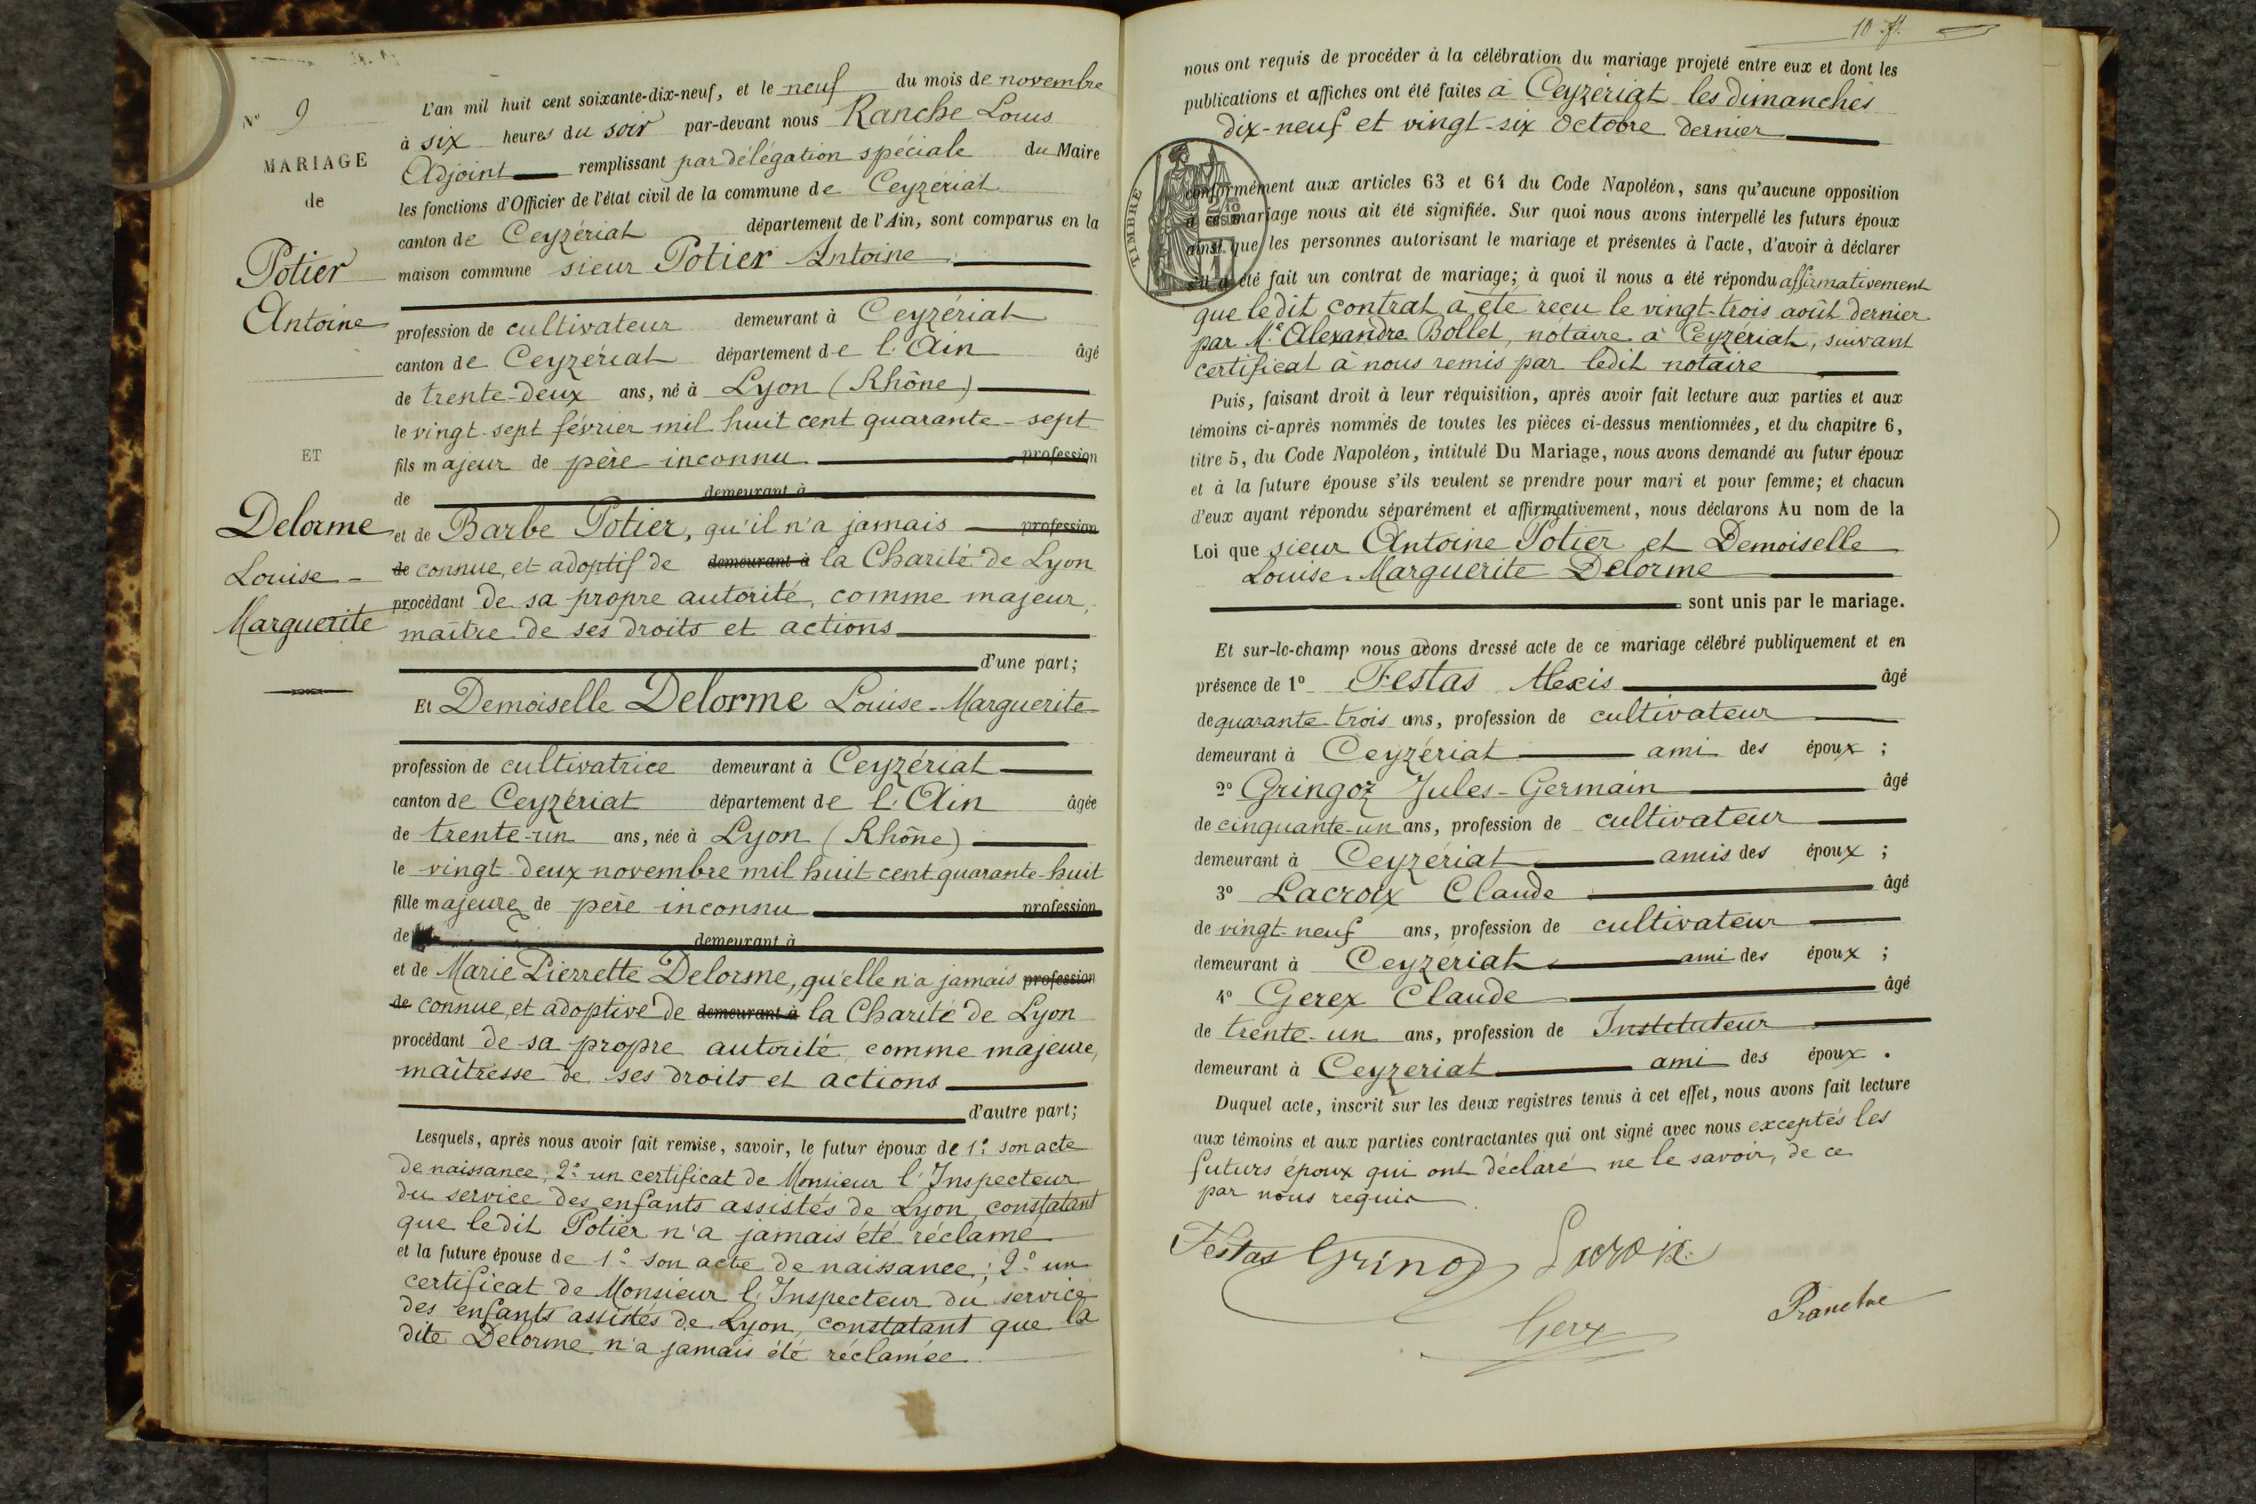 N° 9
MARIAGE
de
Potier
Antoine
ET
Delorme
Louise
Marguerite
L'an mil huit cent soixante-dix-neuf, et le neuf du mois de novembre
à six heures du soir par-devant nous Ranche Louis
Adjoint remplissant par délégation spéciale du Maire
les fonctions d'Officier de l'état civil de la commune de Ceyzériat
canton de Ceyzériat département de l'Ain, sont comparus en la
maison commune sieur Potier Antoine
profession de cultivateur demeurant à Ceyzériat
canton de Ceyzériat département de l'Ain âgé
de trente-deux ans, né à Lyon (Rhône)
le vingt-sept février mil huit cent quarante-sept
fils majeur de père inconnu profession
de demeurant à
et de Barbe Potier, qu'il n'a jamais profession
de connue, et adoptif de demeurant à la Charité de Lyon
procédant de sa propre autorité, comme majeur,
maître de ses droits et actions
d'une part;
Et Demoiselle Delorme Louise-Marguerite
profession de cultivatrice demeurant à Ceyzériat
canton de Ceyzériat département de l'Ain âgée
de trente-un ans, née à Lyon (Rhône)
le vingt-deux novembre mil huit cent quarante-huit
fille majeure de père inconnu profession
de demeurant à
et de Marie Pierrette Delorme, qu'elle n'a jamais profession
de connue, et adoptive de demeurant à la Charité de Lyon
procédant de sa propre autorité, comme majeure,
maîtresse de ses droits et actions
d'autre part;
Lesquels, après nous avoir fait remise, savoir, le futur époux de 1° son acte
de naissance; 2° un certificat de Monsieur l'Inspecteur
du service des enfants assistés de Lyon, constatant
que ledit Potier n'a jamais été réclamé
et la future épouse de 1° son acte de naissance; 2° un
certificat de Monsieur l'Inspecteur du service
des enfants assistés de Lyon, constatant que la
dite Delorme n'a jamais été réclamée
10 f.
nous ont requis de procéder à la célébration du mariage projeté entre eux et dont les
publications et affiches ont été faites à Ceyzériat les dimanches
dix-neuf et vingt-six octobre dernier
TIMBRE
conformément aux articles 63 et 64 du Code Napoléon, sans qu'aucune opposition
à ce mariage nous ait été signifiée. Sur quoi nous avons interpellé les futurs époux
ainsi que les personnes autorisant le mariage et présentes à l'acte, d'avoir à déclarer
s'il a été fait un contrat de mariage; à quoi il nous a été répondu affirmativement
que ledit contrat a été reçu le vingt-trois août dernier
par Me Alexandre Bollet, notaire à Ceyzériat, suivant
certificat à nous remis par ledit notaire
Puis, faisant droit à leur réquisition, après avoir fait lecture aux parties et aux
témoins ci-après nommés de toutes les pièces ci-dessus mentionnées, et du chapitre 6,
titre 5, du Code Napoléon, intitulé Du Mariage, nous avons demandé au futur époux
et à la future épouse s'ils veulent se prendre pour mari et pour femme; et chacun
d'eux ayant répondu séparément et affirmativement, nous déclarons Au nom de la
Loi que sieur Antoine Potier et Demoiselle
Louise-Marguerite Delorme
sont unis par le mariage.
Et sur-le-champ nous avons dressé acte de ce mariage célébré publiquement et en
présence de 1° Festas Alexis âgé
de quarante-trois ans, profession de cultivateur
demeurant à Ceyzériat ami des époux ;
2° Gringoz Jules-Germain âgé
de cinquante-un ans, profession de cultivateur
demeurant à Ceyzériat amis des époux ;
3° Lacroix Claude âgé
de vingt-neuf ans, profession de cultivateur
demeurant à Ceyzériat ami des époux ;
4° Gerex Claude âgé
de trente-un ans, profession de Instituteur
demeurant à Ceyzeriat ami des époux .
Duquel acte, inscrit sur les deux registres tenus à cet effet, nous avons fait lecture
aux témoins et aux parties contractantes qui ont signé avec nous exceptés les
futurs époux qui ont déclaré ne le savoir, de ce
par nous requis
Festas Gringoz Lacroix
Gerex Ranche